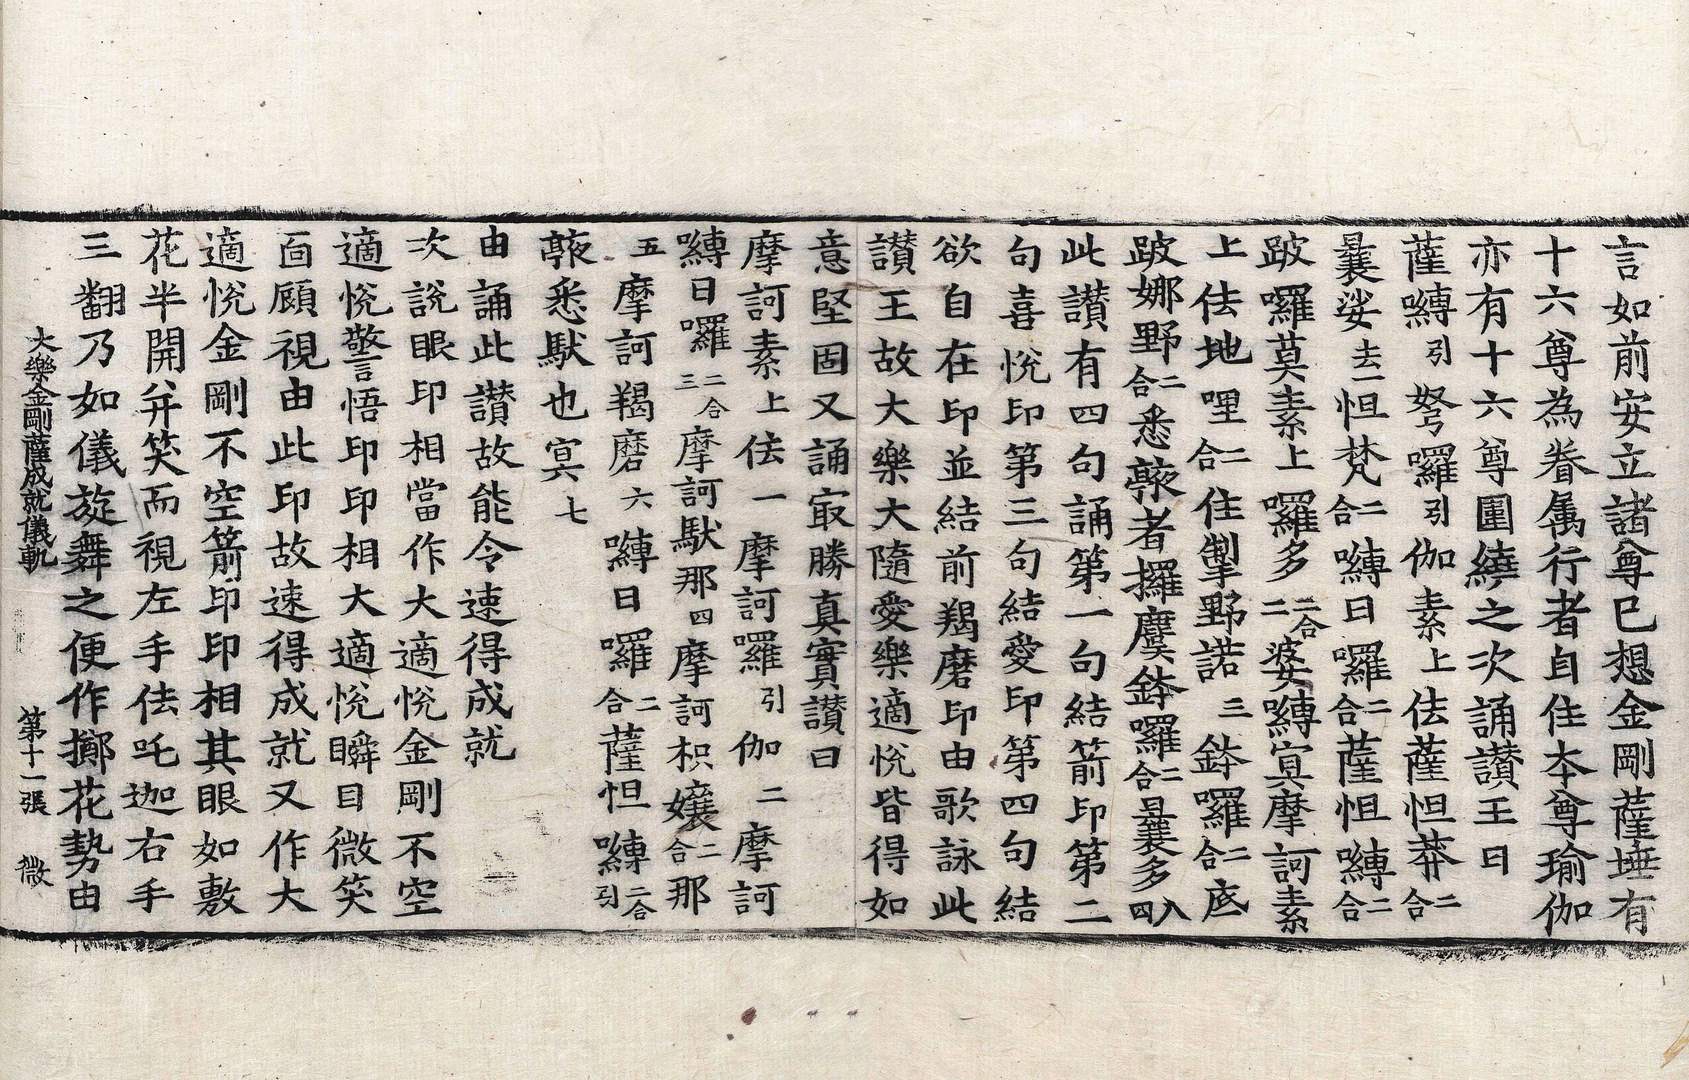 言如前安立諸尊已想金剛薩埵有
十六尊為眷属行者自住本尊瑜伽
亦有十六尊圍繞之次誦讃王曰
薩嚩引弩囉引伽素上佉薩怛莽二合
曩娑去一怛梵二合嚩日囉二合薩怛嚩二合
跛囉莫素上囉多二合二婆嚩寘摩訶素
上佉地哩二合住掣野諾三鉢囉二合底
跛娜野二合悉䔾者攞麌鉢囉二合曩多八四
此讃有四句誦第一句結箭印第二
句喜悅印第三句結愛印第四句結
欲自在印並結前羯磨印由歌詠此
讃王故大樂大隨愛樂適悅皆得如
意堅固又誦㝡勝真實讃曰
摩訶素上佉一摩訶囉引伽二摩訶
嚩日囉二合三摩訶馱那四摩訶枳孃二合那
五摩訶羯磨六嚩日囉二合薩怛嚩二合引
䔾悉馱也寘七
由誦此讃故能令速得成就
次說眼印相當作大適悅金剛不空
適悅警悟印印相大適悅瞬目微笑
面顧視由此印故速得成就又作大
適悅金剛不空箭印印相其眼如敷
花半開幷笑而視左手佉吒迦右手
三翻乃如儀旋舞之便作擲花勢由
大樂金剛薩成就儀軌　第十一張　微